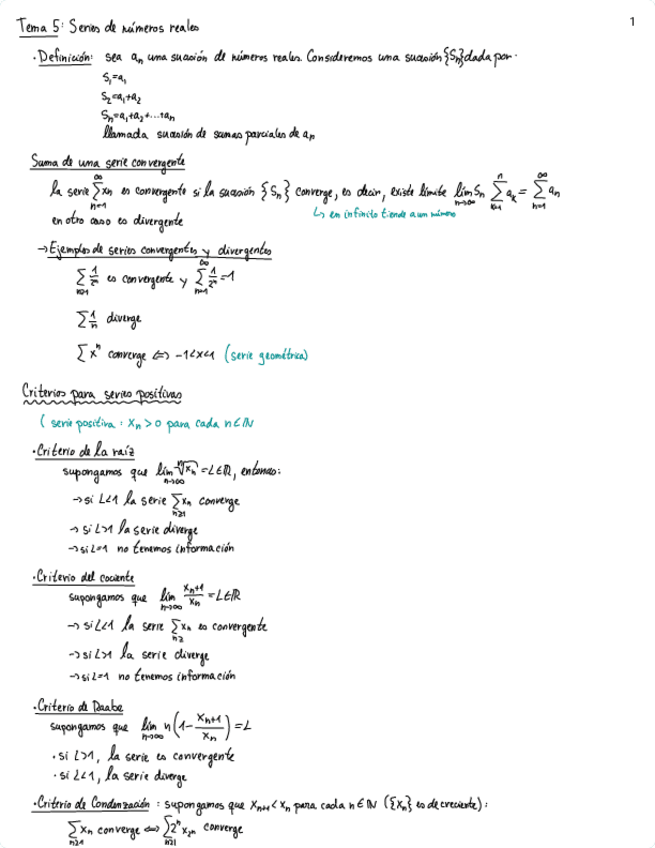 1
Tema 5: Series de números reales
· Definición: sea aₙ una sucesión de números reales. Consideremos una sucesión {Sₙ} dada por:
S₁=a₁
S₂=a₁+a₂
Sₙ=a₁+a₂+...+aₙ
llamada sucesión de sumas parciales de aₙ
Suma de una serie convergente
la serie ∑_{n=1}^{∞} xn es convergente si la sucesión {Sₙ} converge, es decir, existe límite lim_{n→∞} Sₙ ∑_{k=1}^{n} aₖ = ∑_{n=1}^{∞} aₙ
en otro caso es divergente
↳ en infinito tiende a un número
→ Ejemplos de series convergentes y divergentes
∑_{n≥1} 1/2ⁿ es convergente y ∑_{n=1}^{∞} 1/2ⁿ = 1
∑ 1/n diverge
∑ xⁿ converge ⇔ -1<x<1 (serie geométrica)
Criterios para series positivas
( serie positiva : xₙ > 0 para cada n∈ℕ
· Criterio de la raíz
supongamos que lim_{n→∞} ⁿ√xₙ = L∈ℝ, entonces:
→ si L<1 la serie ∑_{n≥1} xₙ converge
→ si L>1 la serie diverge
→ si L=1 no tenemos información
· Criterio del cociente
supongamos que lim_{n→∞} xₙ₊₁/xₙ = L∈ℝ
→ si L<1 la serie ∑_{n≥} xₙ es convergente
→ si L>1 la serie diverge
→ si L=1 no tenemos información
· Criterio de Raabe
supongamos que lim_{n→∞} n(1 - xₙ₊₁/xₙ) = L
· si L>1, la serie es convergente
· si L<1, la serie diverge
· Criterio de Condenzación : supongamos que xₙ₊₁ < xₙ para cada n∈ℕ ({xₙ} es decreciente) :
∑_{n≥1} xₙ converge ⇔ ∑_{n≥1} 2ⁿ x₂ₙ converge